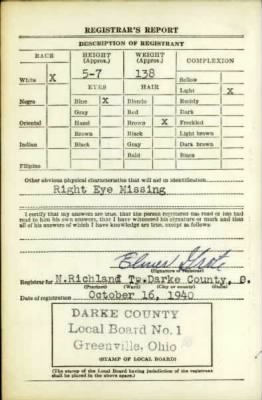 REGISTRAR'S REPORT
DESCRIPTION OF REGISTRANT
RACE HEIGHT (Approx.) WEIGHT (Approx.) COMPLEXION
White X 5-7 138 Sallow
EYES HAIR Light X
Negro Blue X Blonde Ruddy
Gray Red Dark
Oriental Hazel Brown X Freckled
Brown Black Light brown
Indian Black Gray Dark brown
Bald Black
Filipino
Other obvious physical characteristics that will aid in identification
Right Eye Missing
I certify that my answers are true; that the person registered has read or has had
read to him his own answers; that I have witnessed his signature or mark and that
all of his answers of which I have knowledge are true, except as follows:
Elmer
(Signature of registrar)
Registrar for N.Richland Tp. Darke County, O.
(Precinct) (Ward) (City or county) (State)
Date of registration October 16, 1940
DARKE COUNTY
Local Board No. 1
Greenville, Ohio
(STAMP OF LOCAL BOARD)
(The stamp of the Local Board having jurisdiction of the registrant
shall be placed in the above space.)